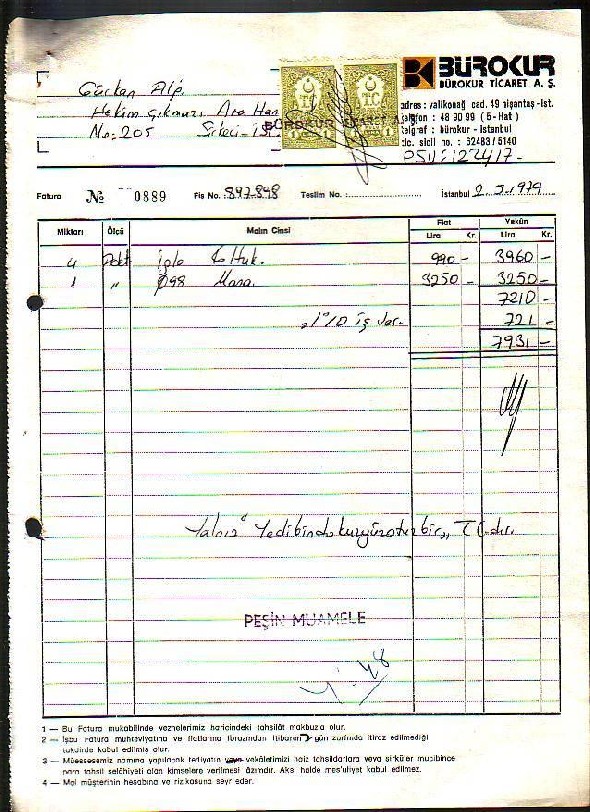 BÜROKUR
BÜROKUR TİCARET A. Ş.
adres : valikonağ cad. 49 nişantaş-ist.
telefon : 48 90 99 (5-Hat)
telgraf : bürokur - istanbul
tic. sicil no. : 62483/5140
Gürkan Alp.
Hakim Çıkmazı Ara Han
No: 205 Sirkeci - İst
T.C
T.C
1
1
Fatura No 0889 Fiş No. : 897.898 Teslim No. : İstanbul 2.1.1979
Miktarı Ölçü Malın Cinsi Fiat Yekûn
Lira Kr. Lira Kr.
4 Adet Koltuk. 990 - 3960 -
1 " Masa. 3250 - 3250 -
7210 -
721 -
7931 -
Yalnız Yedibindokuzyüzotuzbir,, TL.dır.
PEŞİN MUAMELE
1 — Bu Fatura mukabilinde veznelerimiz haricindeki tahsilât makbuzla olur.
2 — İşbu Fatura muhteviyatına ve fiatlarına ibrazından itibaren 7 gün zarfında itiraz edilmediği
takdirde kabul edilmiş olur.
3 — Müessesemiz namına yapılacak tediyatın vekâletimizi haiz tahsildarlara veya sirküler mucibince
para tahsil selâhiyeti olan kimselere verilmesi lâzımdır. Aksi halde mes'uliyet kabul edilmez.
4 — Mal müşterinin hesabına ve rizikosuna seyr eder.